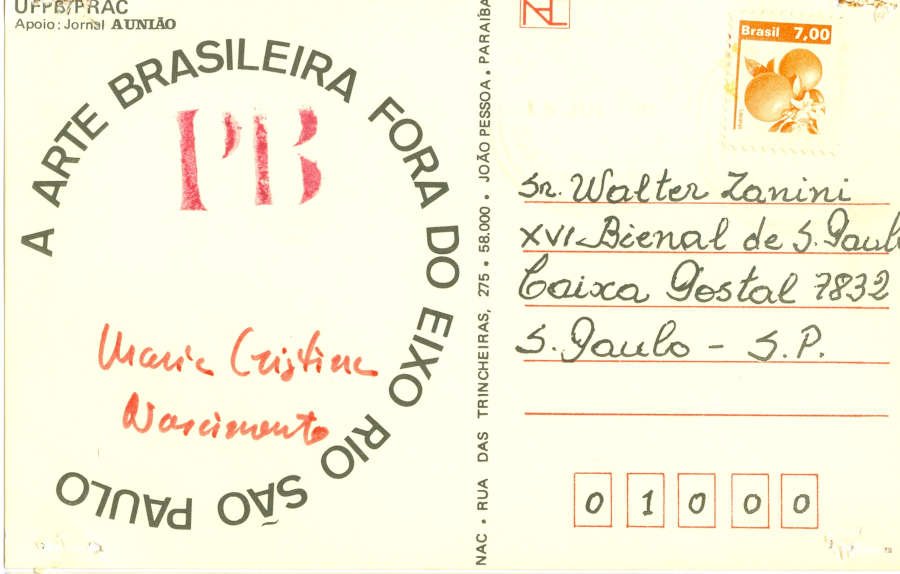 UFPB/PRAC
Apoio: Jornal A UNIÃO
A ARTE BRASILEIRA FORA DO EIXO RIO SÃO PAULO
PB
Maria Cristina
Nascimento
NAC • RUA DAS TRINCHEIRAS, 275 • 58.000 • JOÃO PESSOA • PARAÍBA
Brasil 7,00
Sr. Walter Zanini
XVI Bienal de S. Paulo
Caixa Postal 7832
S. Paulo - S.P.
0 1 0 0 0